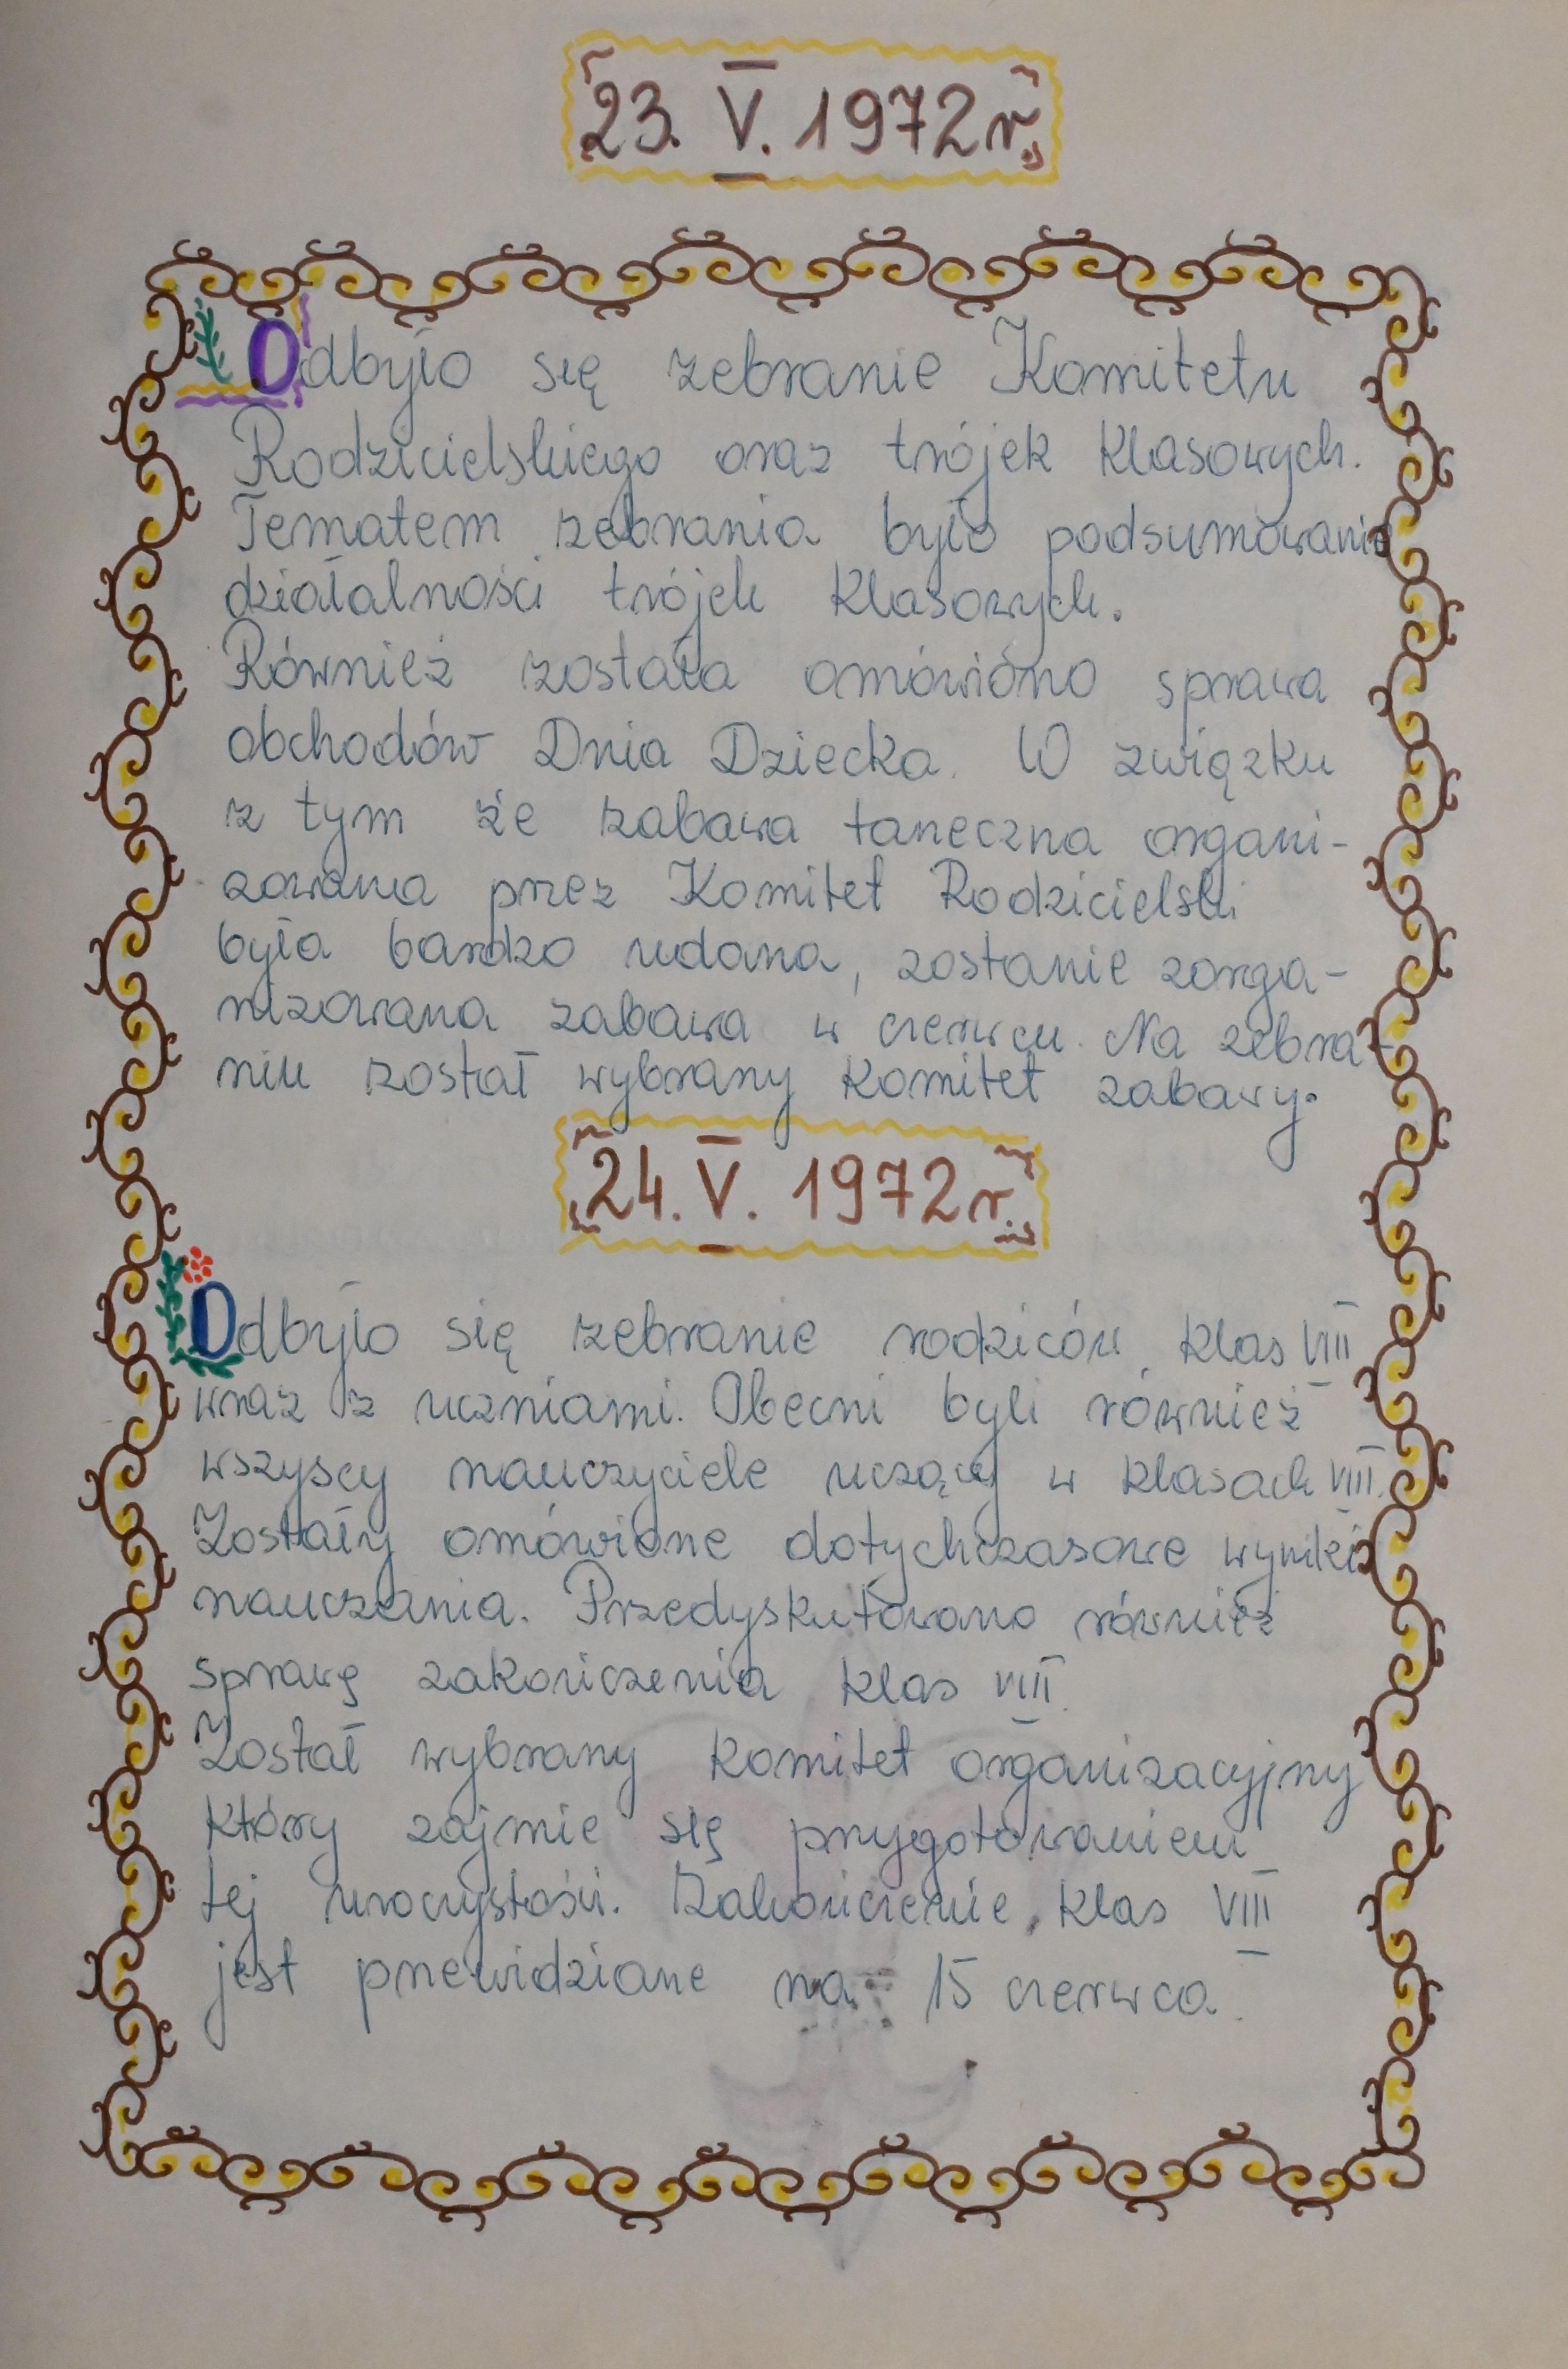 23. V. 1972r.
Odbyło się zebranie Komitetu
Rodzicielskiego oraz trójek klasowych.
Tematem zebrania było podsumowanie
działalności trójek klasowych.
Również została omówiono sprawa
obchodów Dnia Dziecka. W związku
z tym że zabawa taneczna organi-
zowana przez Komitet Rodzicielski
była bardzo udana, zostanie zorga-
nizowana zabawa w czerwcu. Na zebra-
niu został wybrany komitet zabawy.
24. V. 1972r.
Odbyło się zebranie rodziców klas VIII
wraz z uczniami. Obecni byli również
wszyscy nauczyciele uczący w klasach VIII.
Zostały omówione dotychczasowe wyniki
nauczania. Przedyskutowano również
sprawę zakończenia klas VIII.
Został wybrany komitet organizacyjny
który zajmie się przygotowaniem
tej uroczystości. Zakończenie klas VIII
jest przewidziane na 15 czerwca.